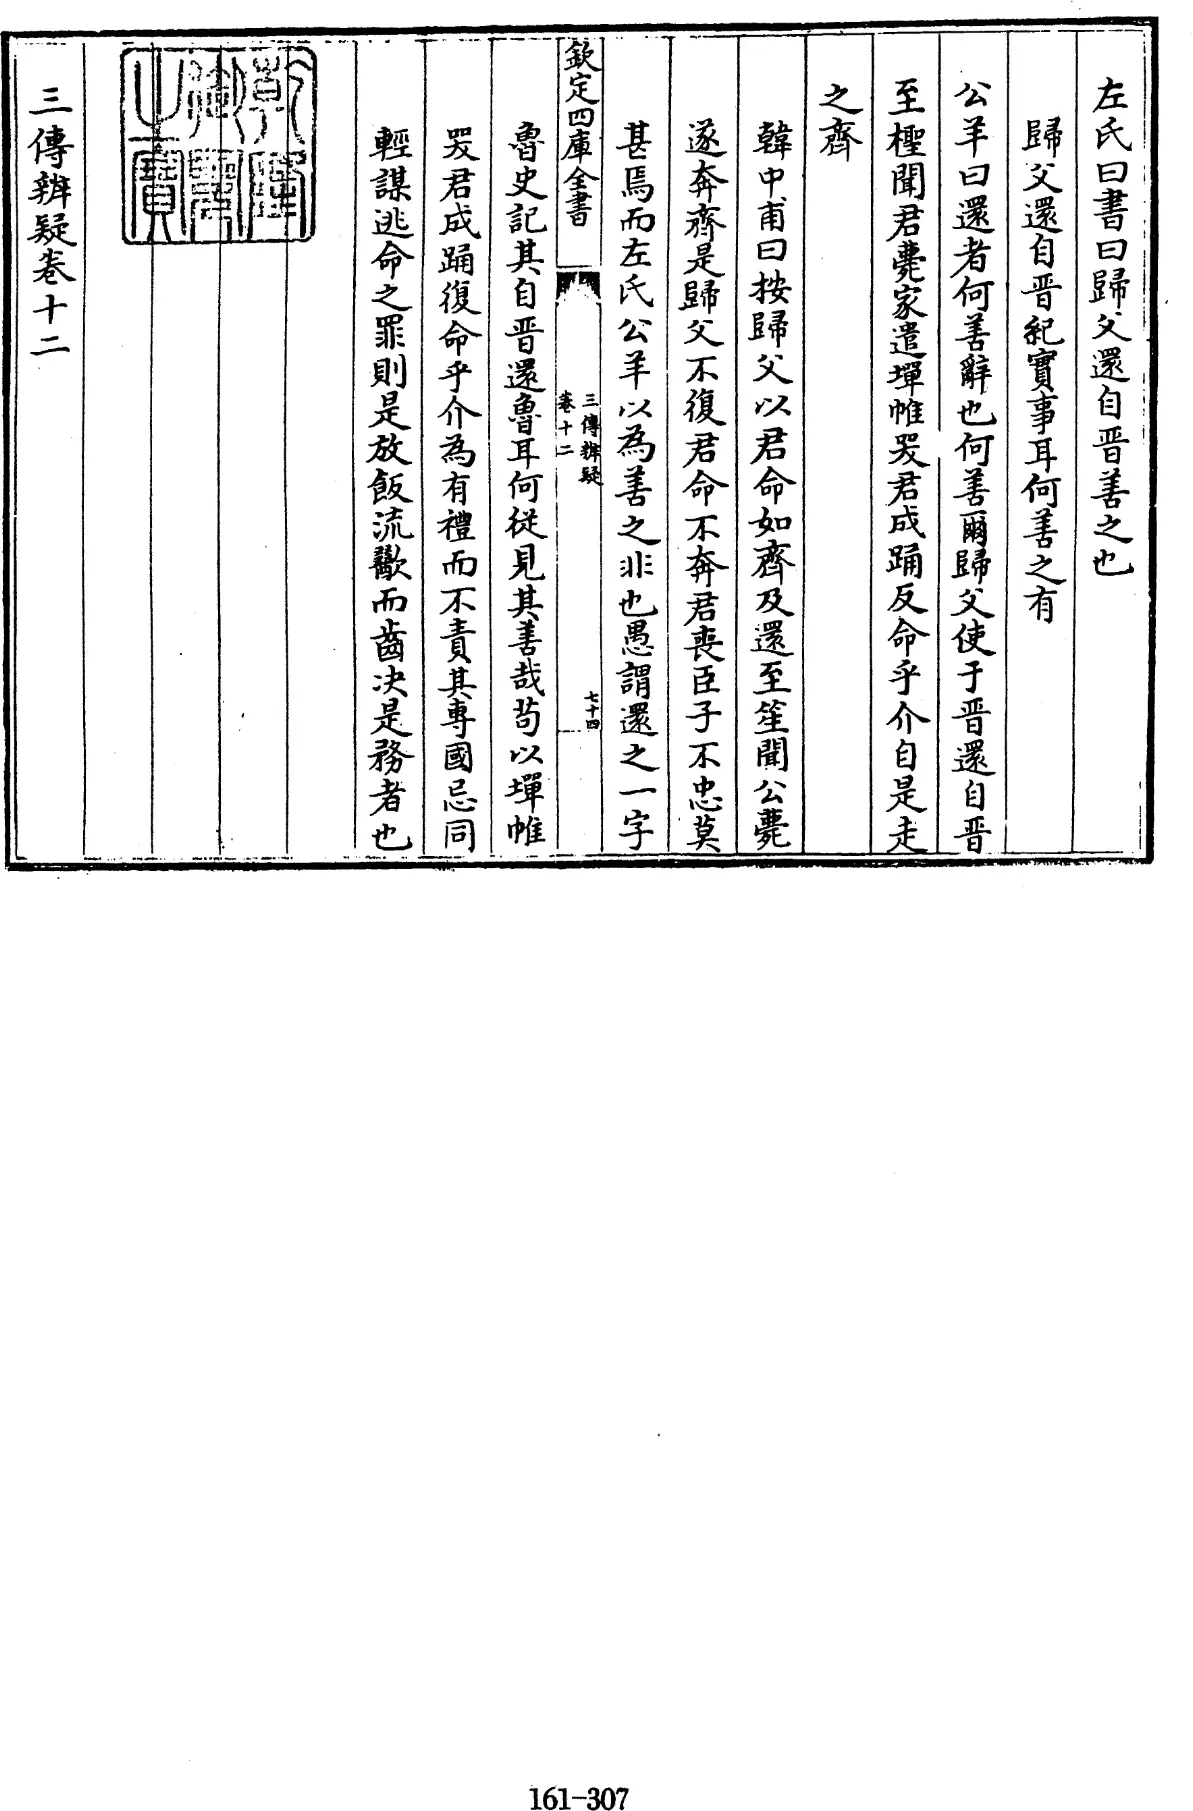 左氏曰書曰歸父還自晋善之也
歸父還自晋紀實事耳何善之有
公羊曰還者何善辭也何善爾歸父使于晋還自晋
至檉聞君薨家遣墠帷哭君成踊反命乎介自是走
之齊
韓中甫曰按歸父以君命如齊及還至笙聞公薨
遂奔齊是歸父不復君命不奔君喪臣子不忠莫
甚焉而左氏公羊以為善之非也愚謂還之一字
欽定四庫全書
三傳辨疑
卷十二
七十四
魯史記其自晋還魯耳何從見其善哉茍以墠帷
哭君成踊復命乎介為有禮而不責其專國忌同
輕謀逃命之罪則是放飯流歠而齒决是務者也
乾隆御覽之寶
三傳辨疑卷十二
161-307